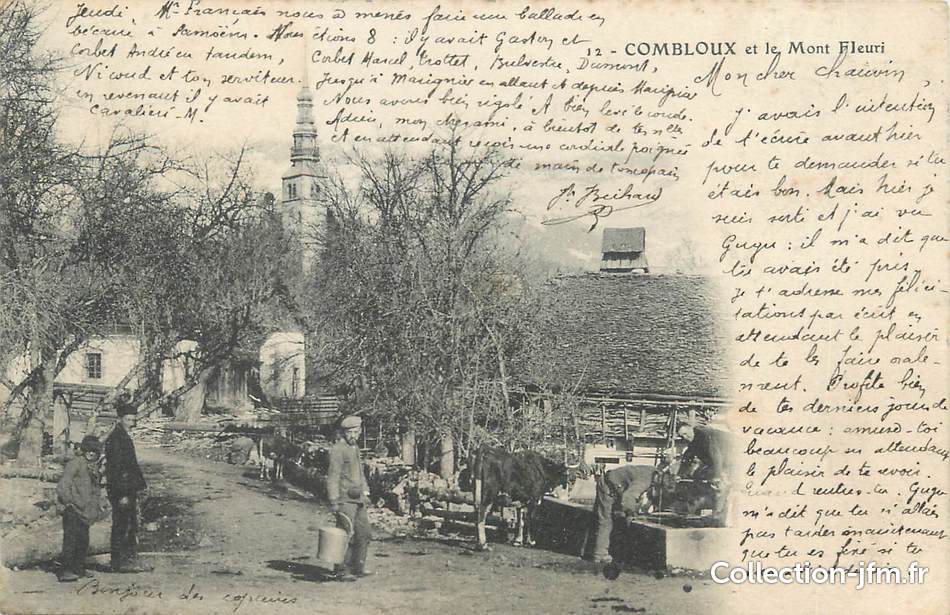 12 - COMBLOUX et le Mont Fleuri
Mon cher Chauvin,
J'avais l'intention
de t'écrire avant hier
pour te demander si tu
étais bon. Mais hier je
suis sorti et j'ai vu
Gugu: il m'a dit que
tu avais été pris.
Je t'adresse mes félici-
tations par écrit en
attendant le plaisir
de te les faire orale-
ment. Profite bien
de tes derniers jours de
vacance: amuse-toi
beaucoup en attendant
le plaisir de te voir.
Quand rentres-tu. Gugu
m'a dit que tu n'allais
pas tarder maintenant
que tu es fixé si tu
Jeudi, Mr Français nous a menés faire une ballade en
bécane à Samoëns. Nous étions 8: il y avait Gaston et
Corbet André en tandem, Corbet Marcel, Trottet, Dumont,
Nicoud et ton serviteur. Jusqu'à Marignier en allant et depuis Marignier
en revenant il y avait
Cavalieri-M.
Nous avons bien rigolé et bien levé le coude.
Adieu, mon cher ami, à bientôt de tes nelles
et en attendant reçois une cordiale poignée
de main de ton copain
Bonjour des copains
Collection-jfm.fr